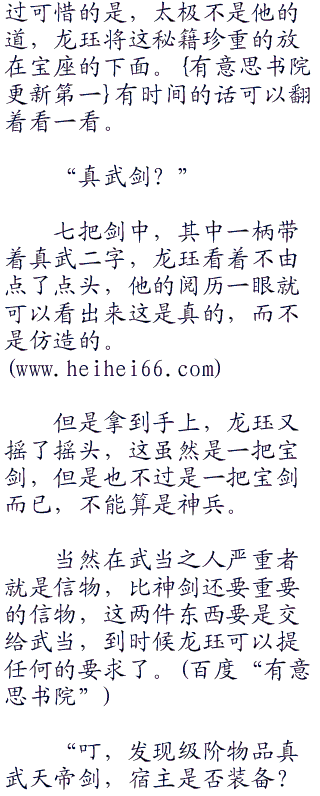 过可惜的是，太极不是他的
道，龙珏将这秘籍珍重的放
在宝座的下面。{有意思书院
更新第一}有时间的话可以翻
着看一看。
“真武剑？”
七把剑中，其中一柄带
着真武二字，龙珏看着不由
点了点头，他的阅历一眼就
可以看出来这是真的，而不
是仿造的。
(www.heihei66.com)
但是拿到手上，龙珏又
摇了摇头，这虽然是一把宝
剑，但是也不过是一把宝剑
而已，不能算是神兵。
当然在武当之人严重者
就是信物，比神剑还要重要
的信物，这两件东西要是交
给武当，到时候龙珏可以提
任何的要求了。(百度“有意
思书院”)
“叮，发现级阶物品真
武天帝剑，宿主是否装备？